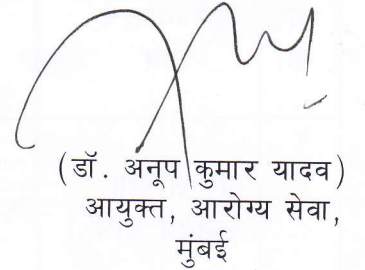 (डॉ. अनूप कुमार यादव)
आयुक्त, आरोग्य सेवा,
मुंबई